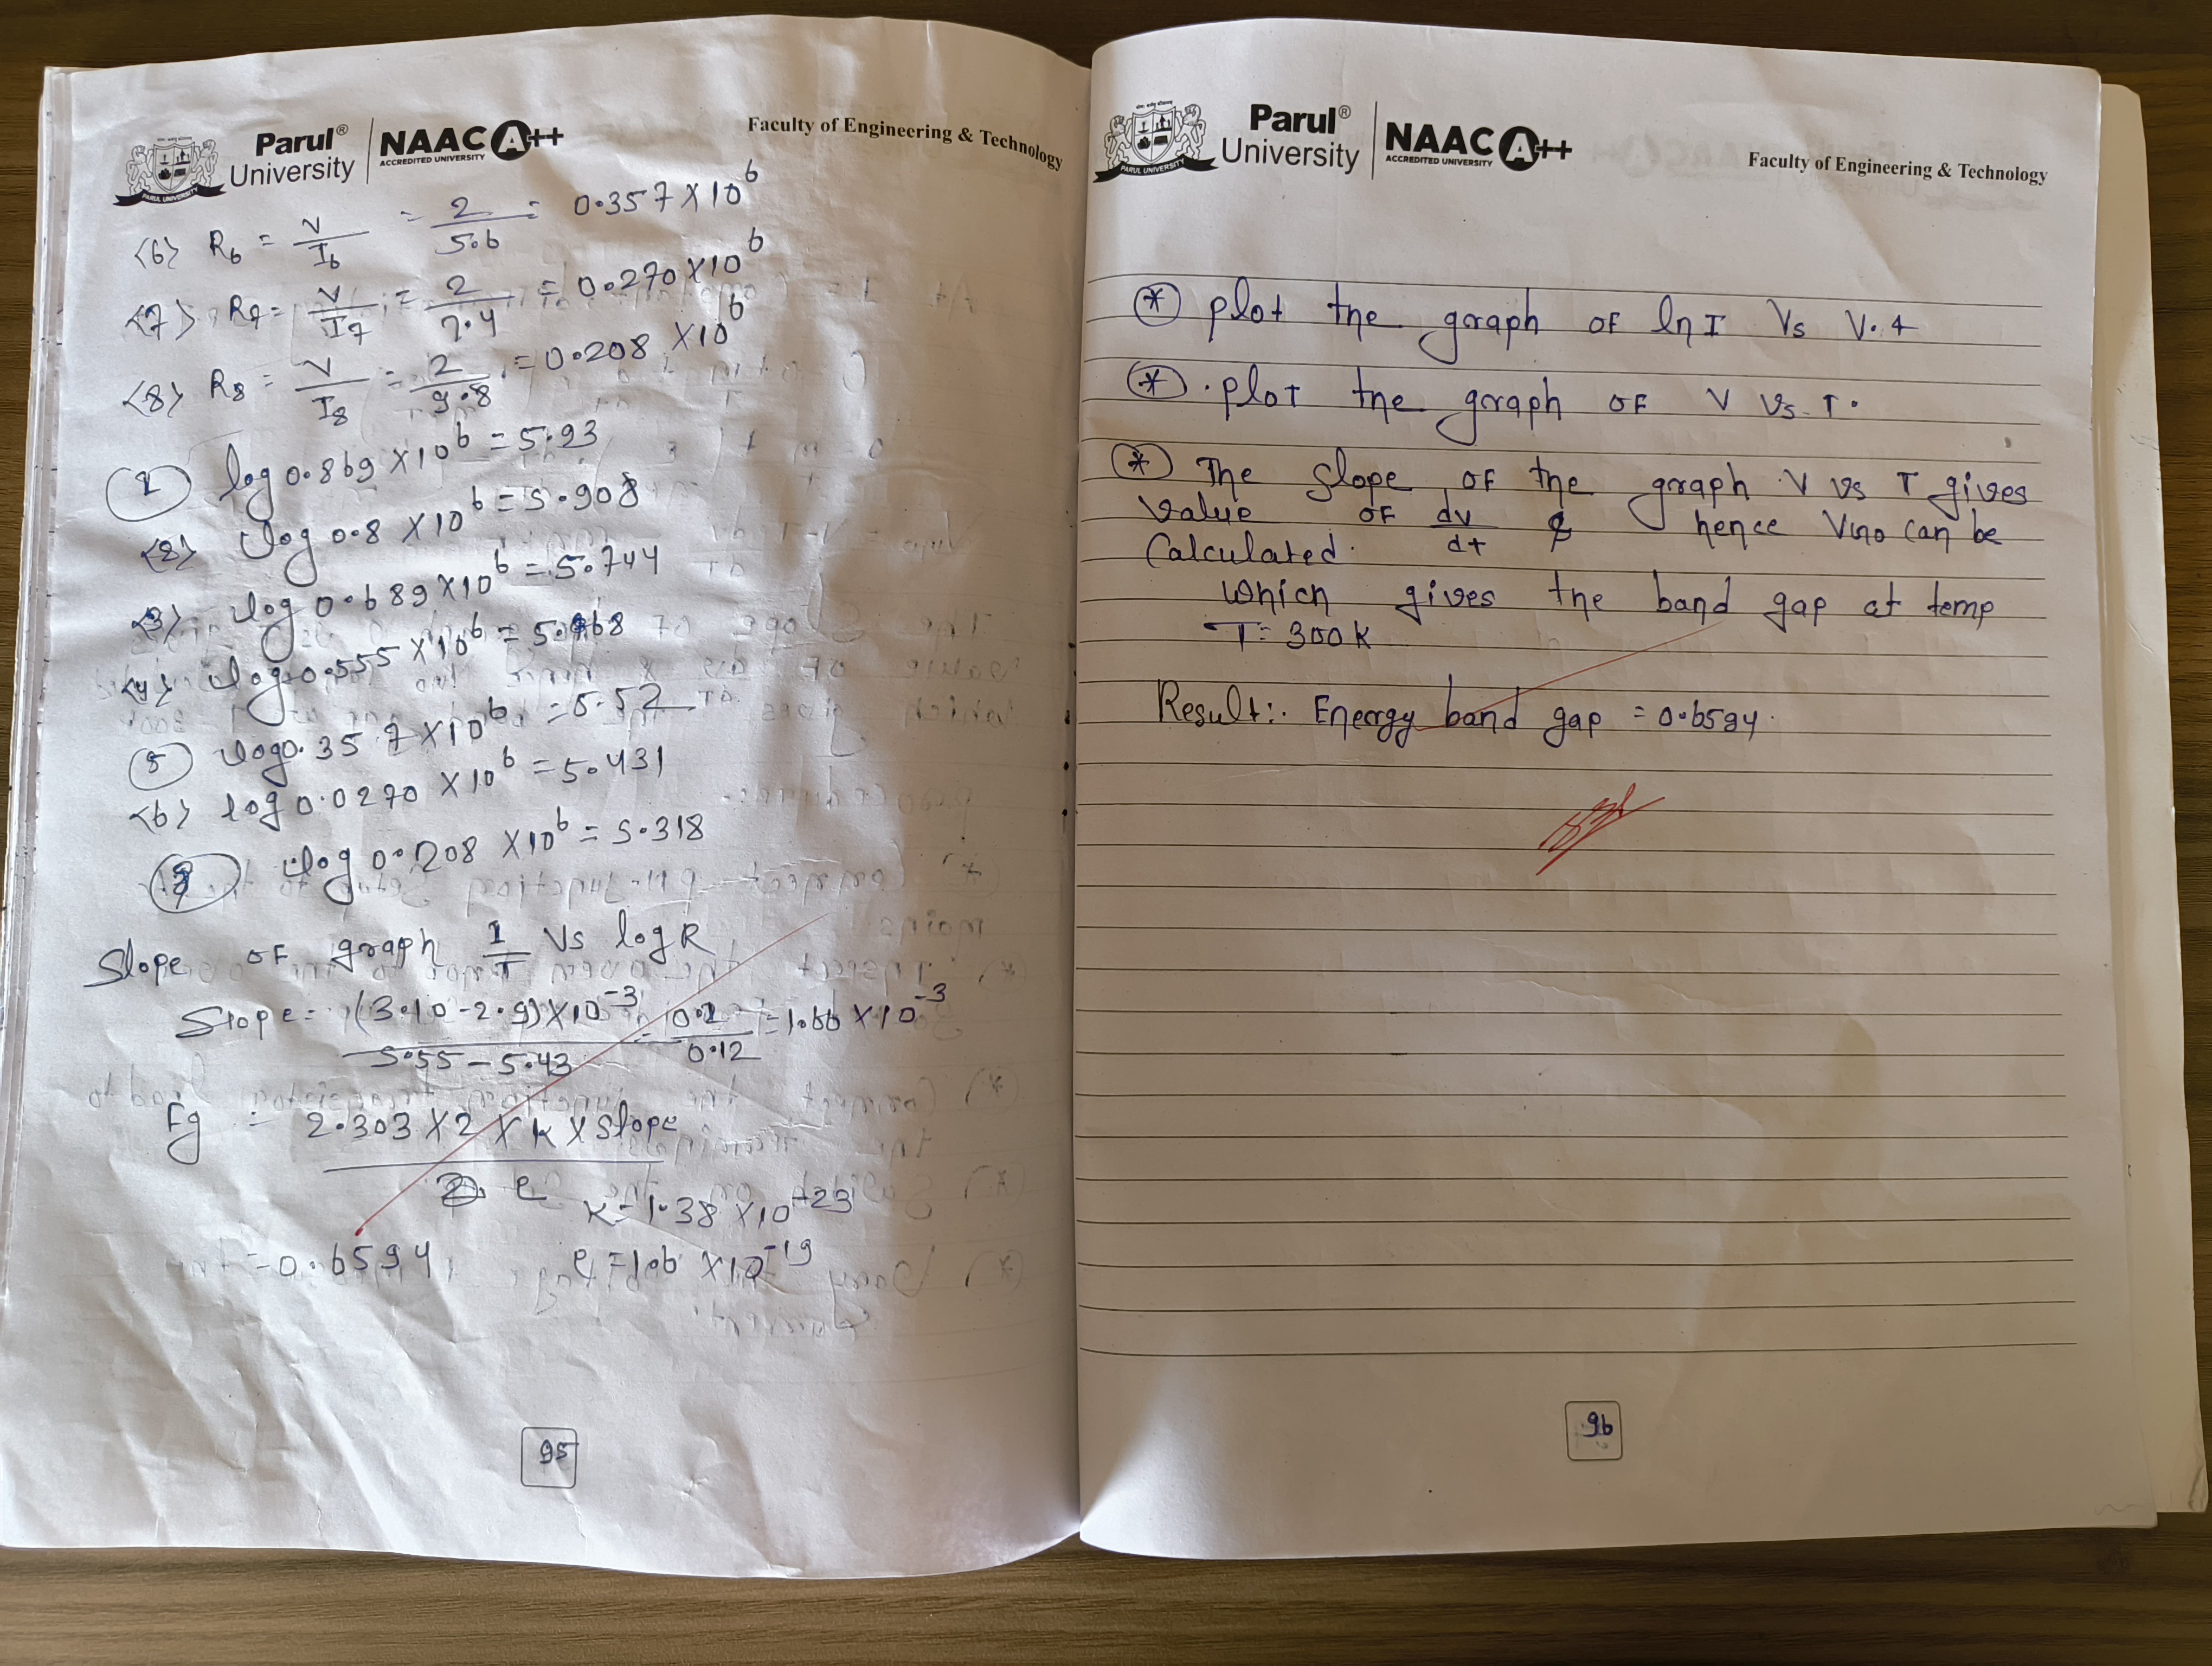 Parul® University NAAC A++ ACCREDITED UNIVERSITY
PARUL UNIVERSITY
Faculty of Engineering & Technology
<6> R6 = V/I6 = 2/5.6 = 0.357 X 10^6
<7> R7 = V/I7 = 2/7.4 = 0.270 X 10^6
<8> R8 = V/I8 = 2/9.8 = 0.208 X 10^6
1 log 0.869 X 10^6 = 5.93
<2> log 0.8 X 10^6 = 5.908
<3> log 0.689 X 10^6 = 5.744
<4> log 0.555 X 10^6
5 log 0.357 X 10^6 = 5.52
<6> log 0.0270 X 10^6 = 5.431
log 0.208 X 10^6 = 5.318
Slope OF graph 1/T Vs log R
Slope = (3.10 - 2.9) X 10^-3 / 5.55 - 5.43 = 0.2/0.12 = 1.66 X 10^-3
Eg = 2.303 X 2 X K X Slope / e
K = 1.38 X 10^-23
= 0.6594 e = 1.6 X 10^-19
95
Parul® University NAAC A++ ACCREDITED UNIVERSITY
PARUL UNIVERSITY
Faculty of Engineering & Technology
* plot the graph OF ln I Vs V. 4
* . plot the graph OF V Vs T.
* The Slope OF the graph V vs T gives
value OF dv/dt & hence Vino can be
Calculated.
which gives the band gap at temp
T = 300 K
Result:. Energy band gap = 0.6594.
96